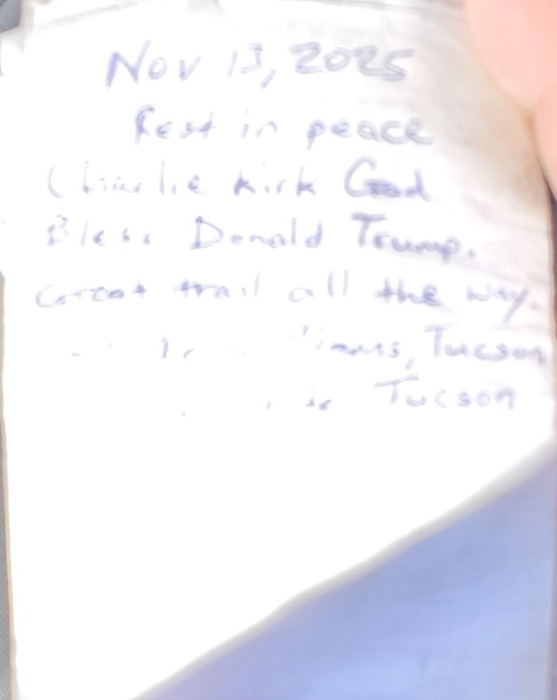 Nov 13, 2025
Rest in peace
Charlie Kirk God
Bless Donald Trump.
Great trail all the way.
Tucson
Tucson